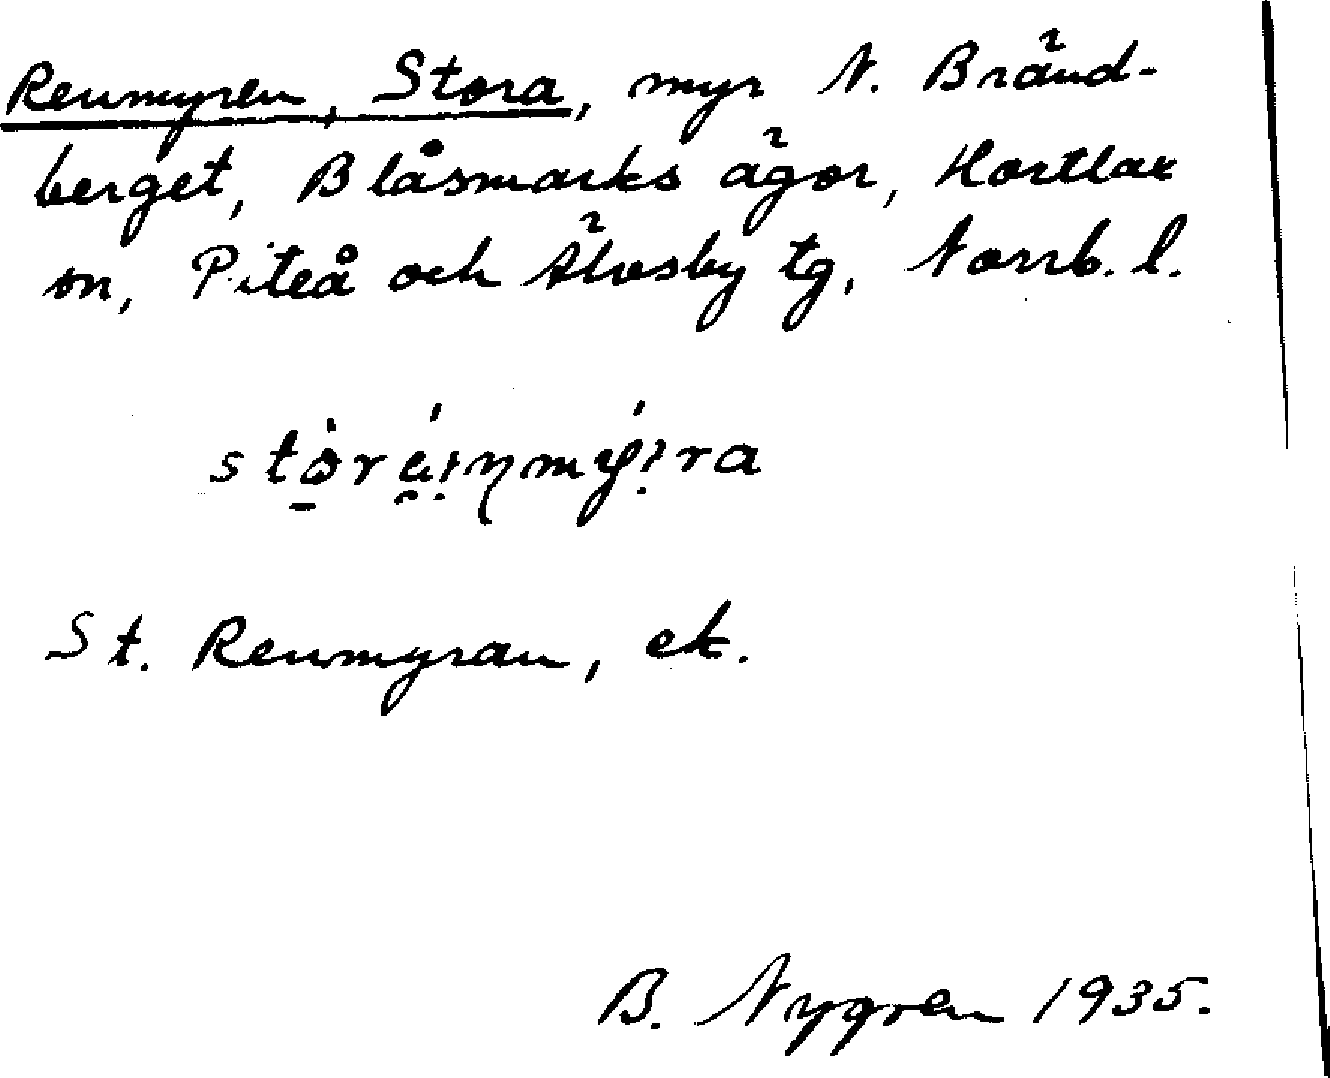 Renmyren, Stora, myr N. Bränd-
berget, Blåsmarks ägor, Hortlax
sn, Piteå och Älvsby tg, Norrb. l.
St. Renmyran, ek.
B. Nygren 1935.